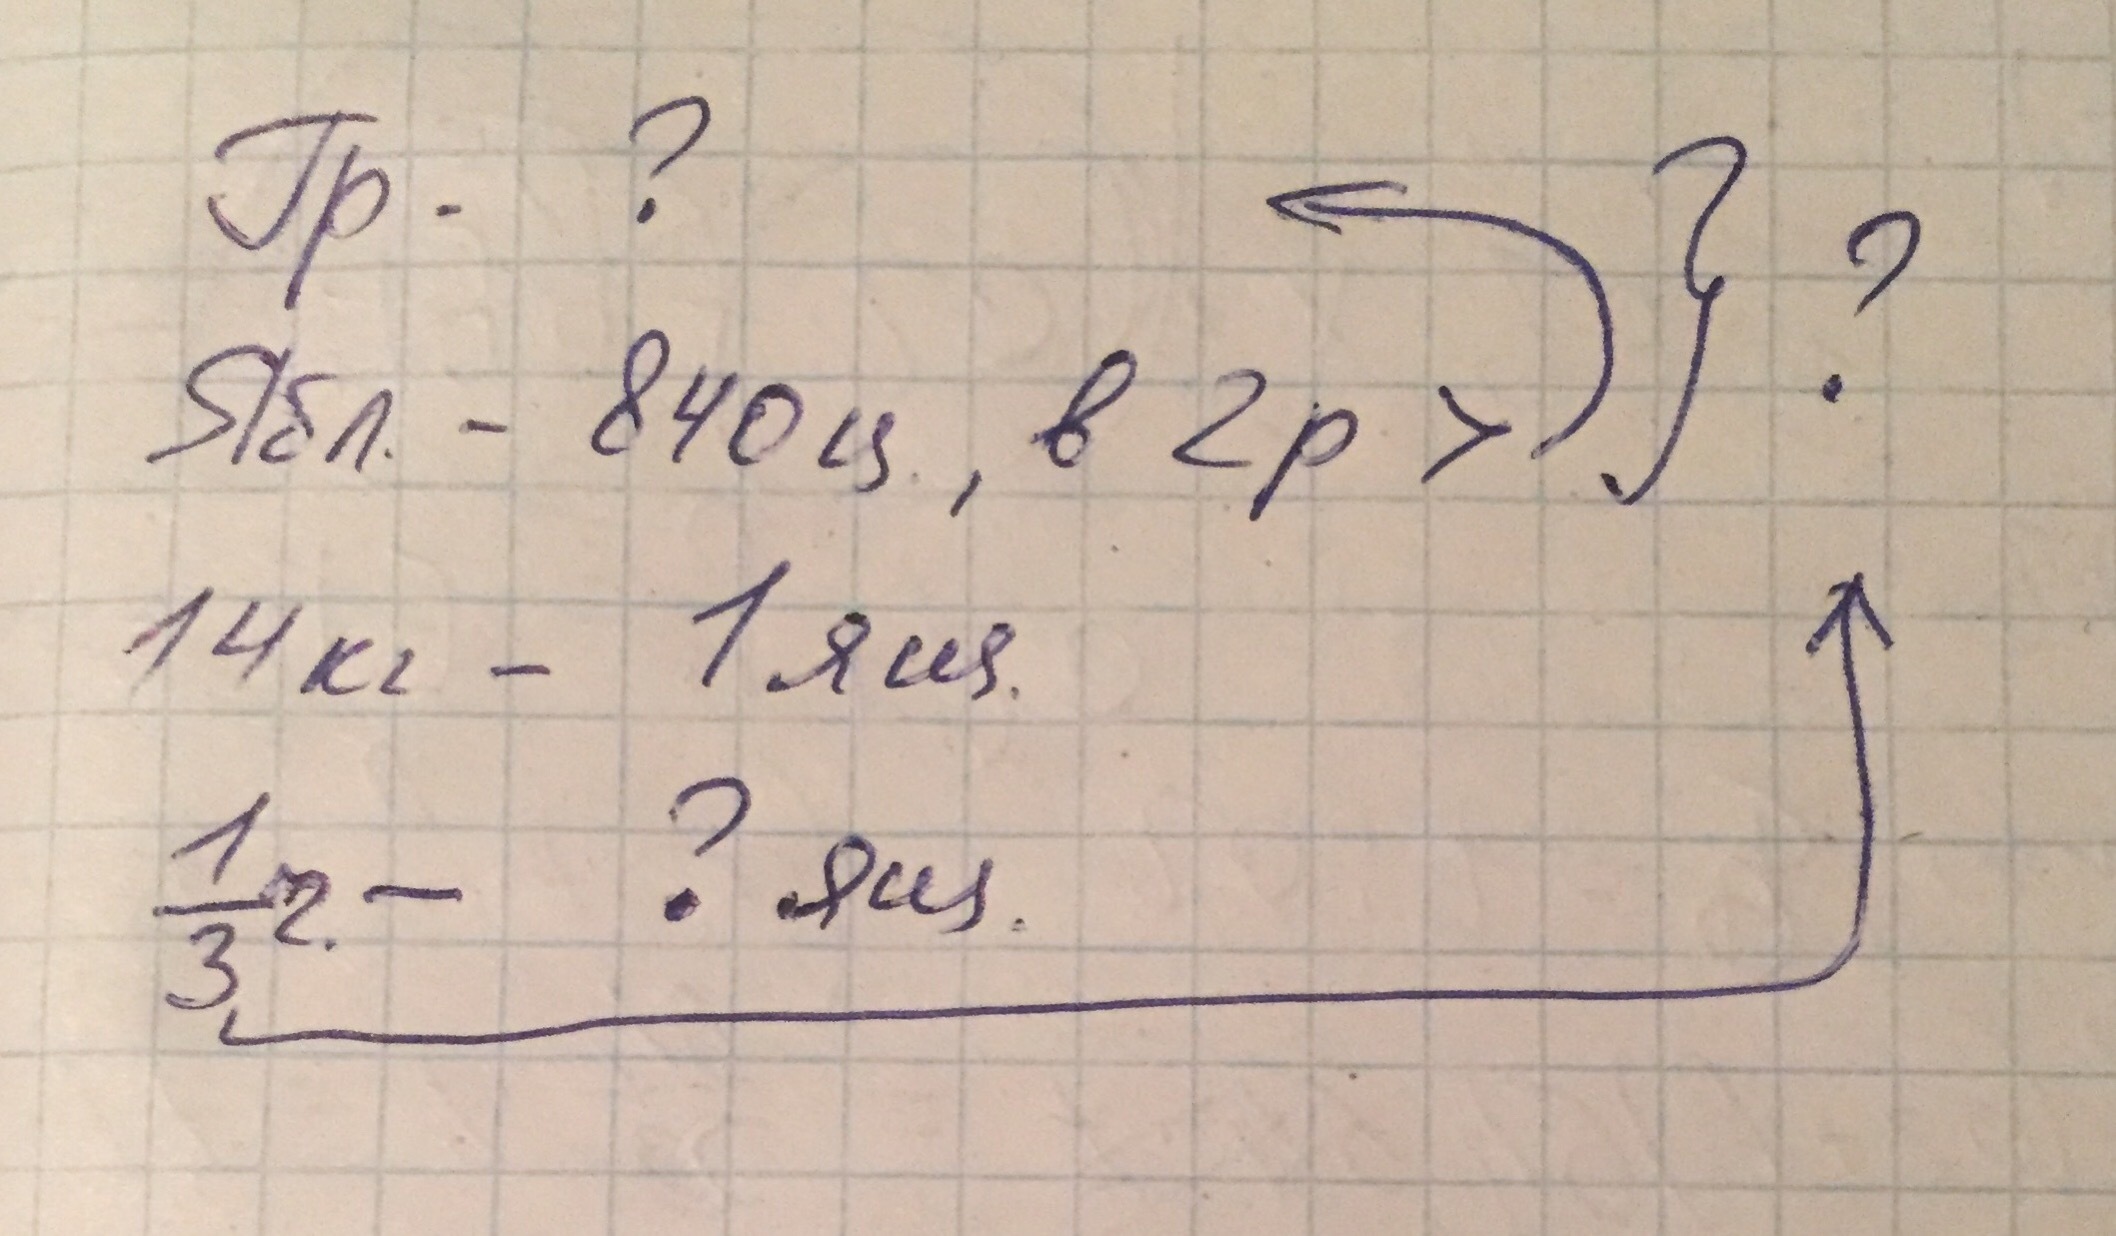 Гр. - ? } ?
Ябл. - 840 ц., в 2 р >
14 кг - 1 ящ.
1/3 ч. - ? ящ.